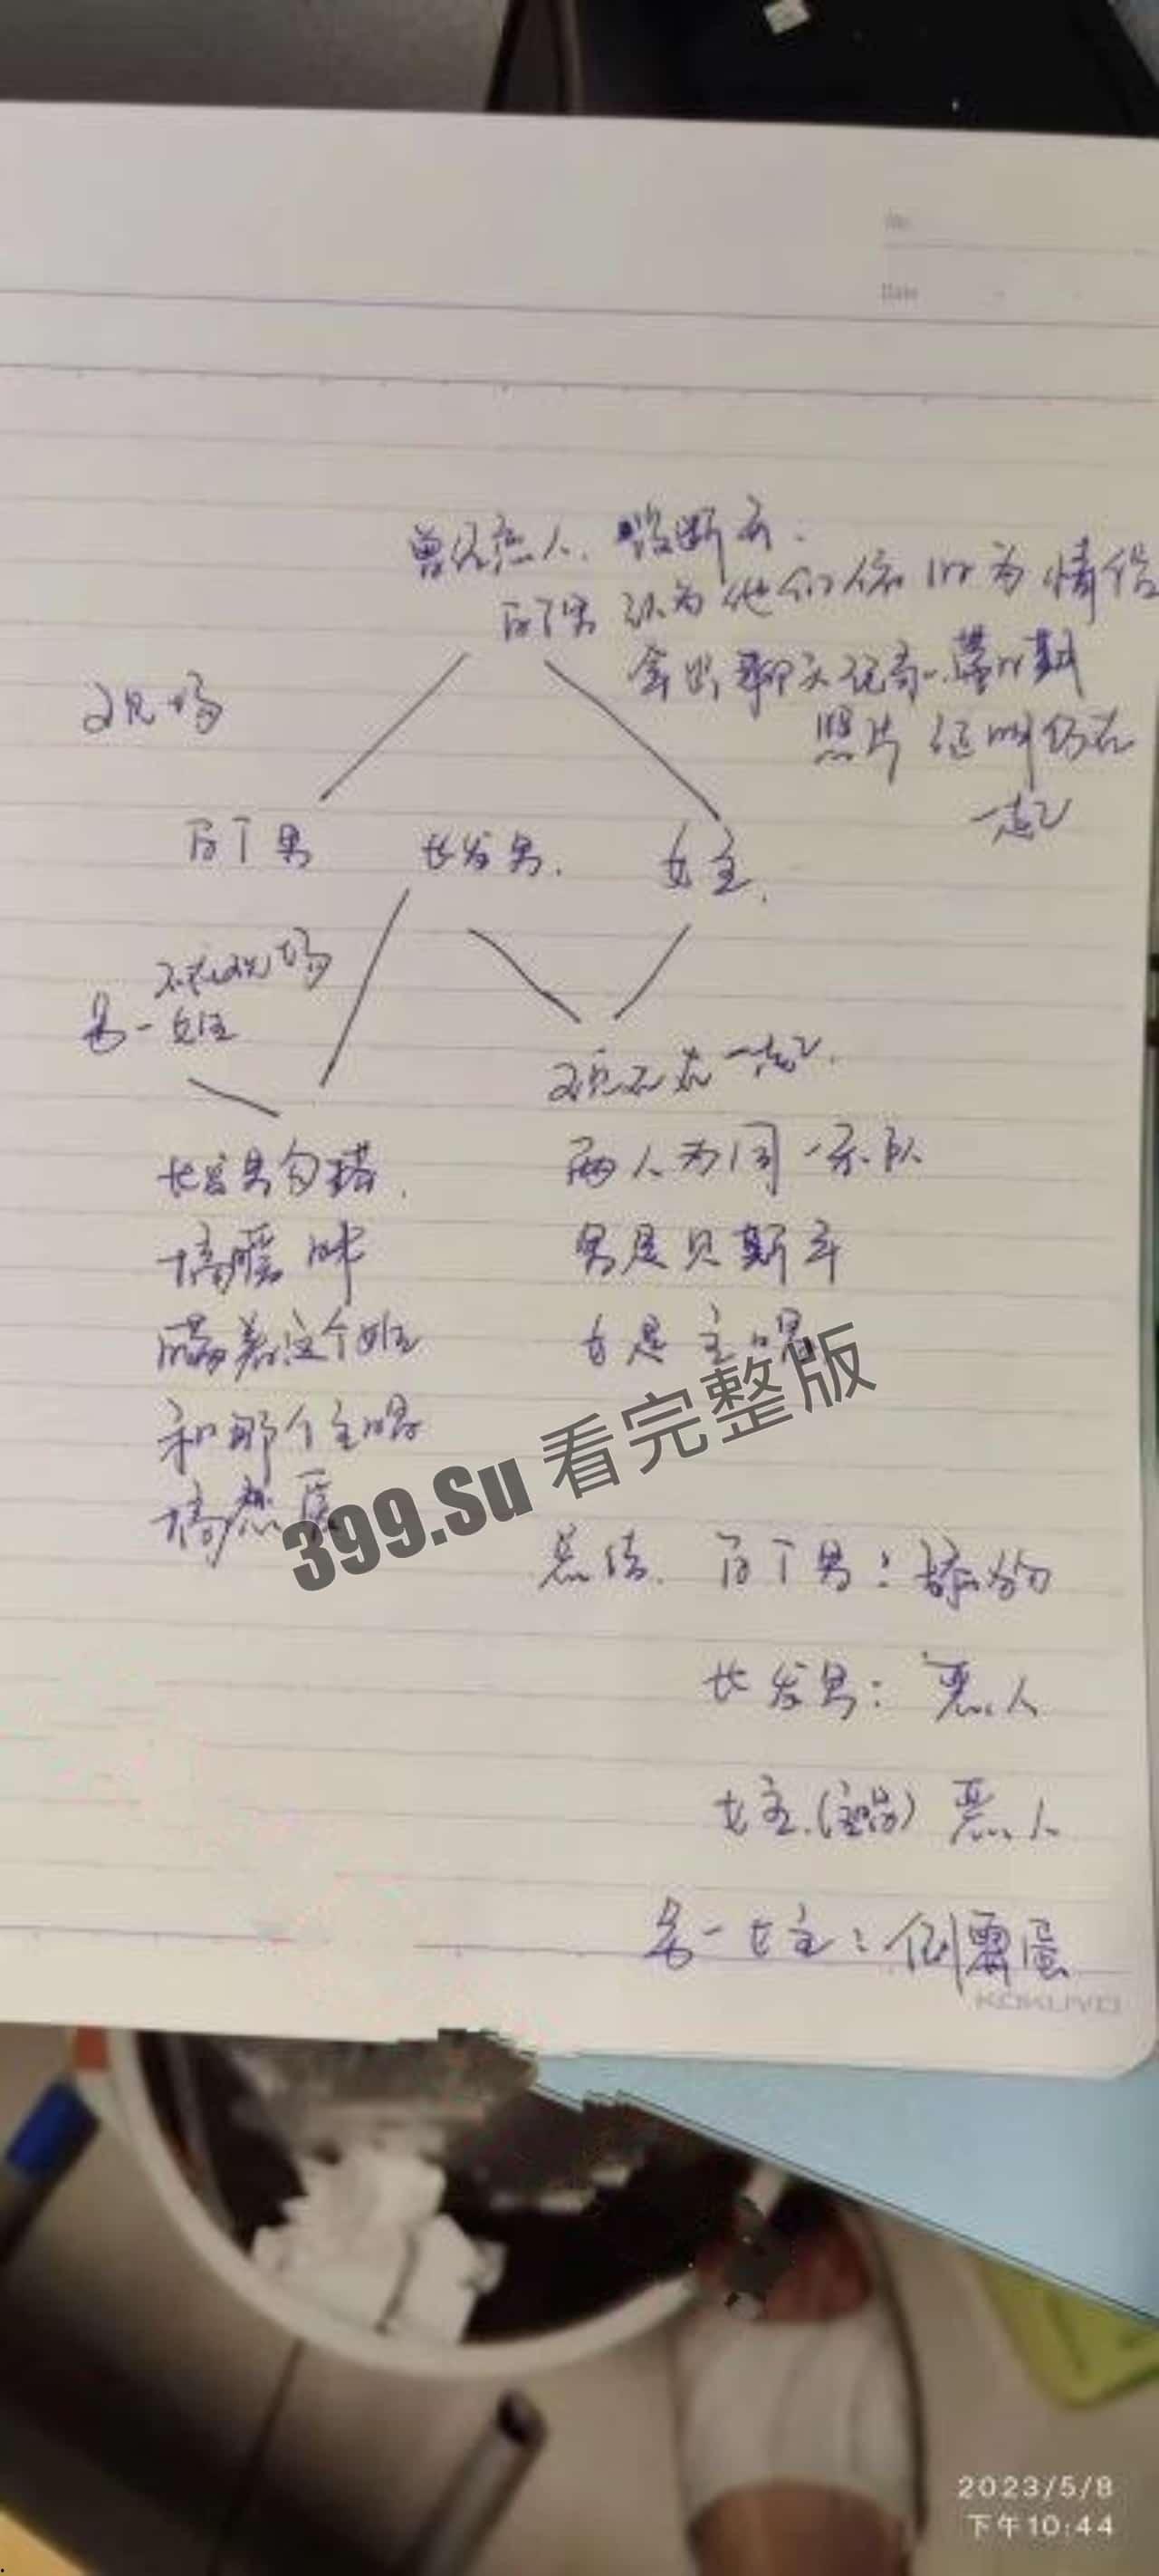 No.
Date
曾经恋人、没断永.
百丁男 认为他们依旧为情侣
拿出聊天记录、
照片 证明仍在
一起
现场
百丁男 长发男. 女主.
不在现场
另一女主
现在在一起.
长发男勾搭.
两人为同一乐队
搞暧昧
男是贝斯手
瞒着这个女主
女是主唱
和那个主唱
搞
399.Su 看完整版
总结. 百丁男：舔狗
长发男：恶人
女主.(主唱) 恶人
另一女主：倒霉蛋
KOKUYO
2023/5/8
下午10:44